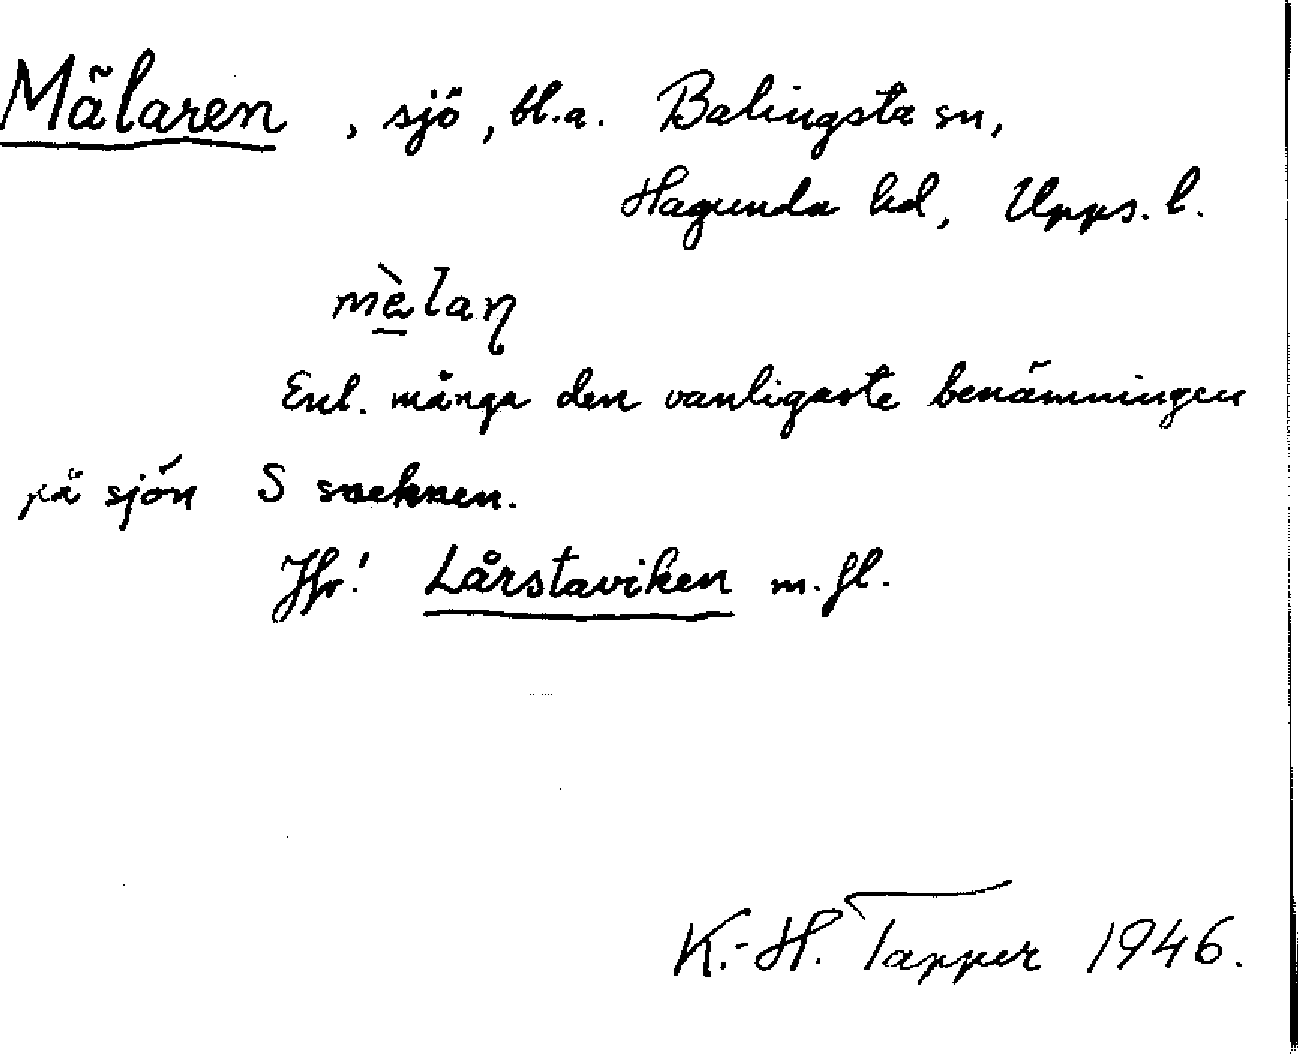 Mälaren, sjö, bl.a. Balingsta sn,
Hagunda hd, Upps. l.
mèlaɳ
Enl. många den vanligaste benämningen
på sjön S socknen.
Jfr! Lårstaviken m.fl.
K.-H. Tapper 1946.